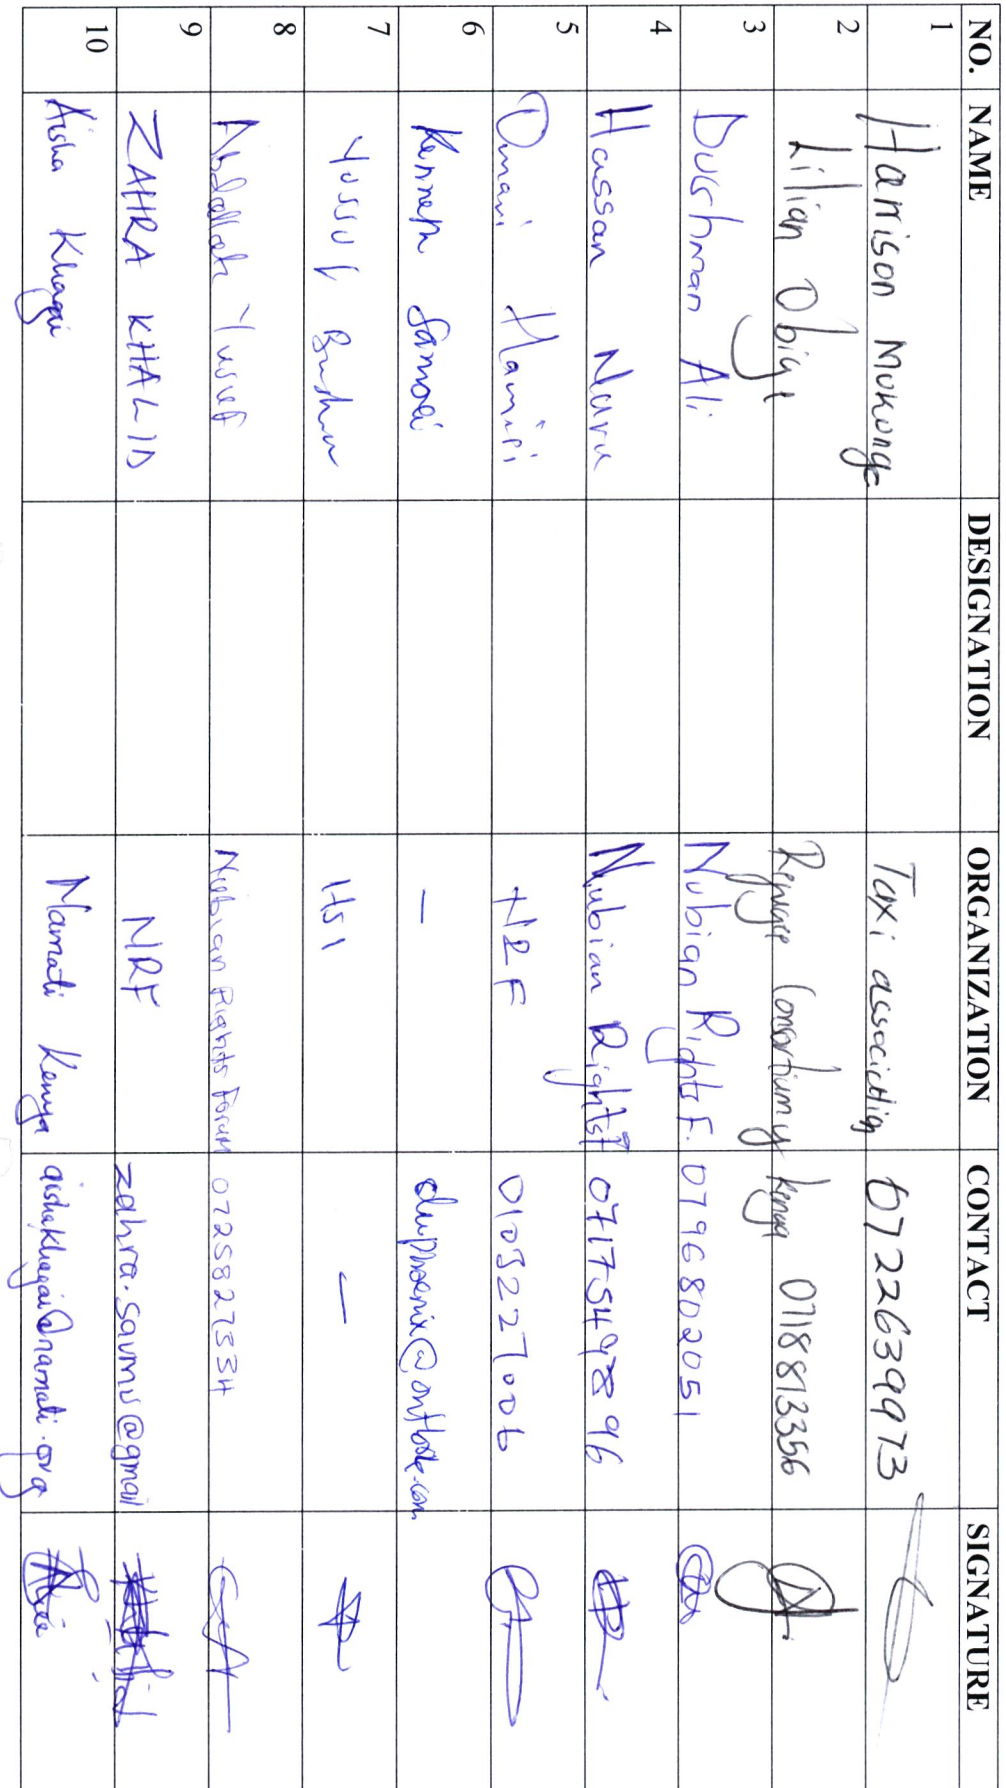 NO. NAME DESIGNATION ORGANIZATION CONTACT SIGNATURE
1 Harrison Mukunga Taxi association 0722639973
2 Lilian Obiye Refugee Consortium Kenya 0718813356
3 Durhman Ali Nubian Rights F. 0796802051
4 Hassan Nuru Nubian Rights f 0717549896
5 Omari Hamisi NRF 0103227006
6 Kenneth Samoei — @outlook.com
7 Yussuf Bashir HSI —
8 Abdallah Yusuf Nubian Rights Forum 0725827534
9 ZAHRA KHALID NRF zahra.saumu@gmail
10 Aisha Khagai Namati Kenya aishakhagai@namati.org